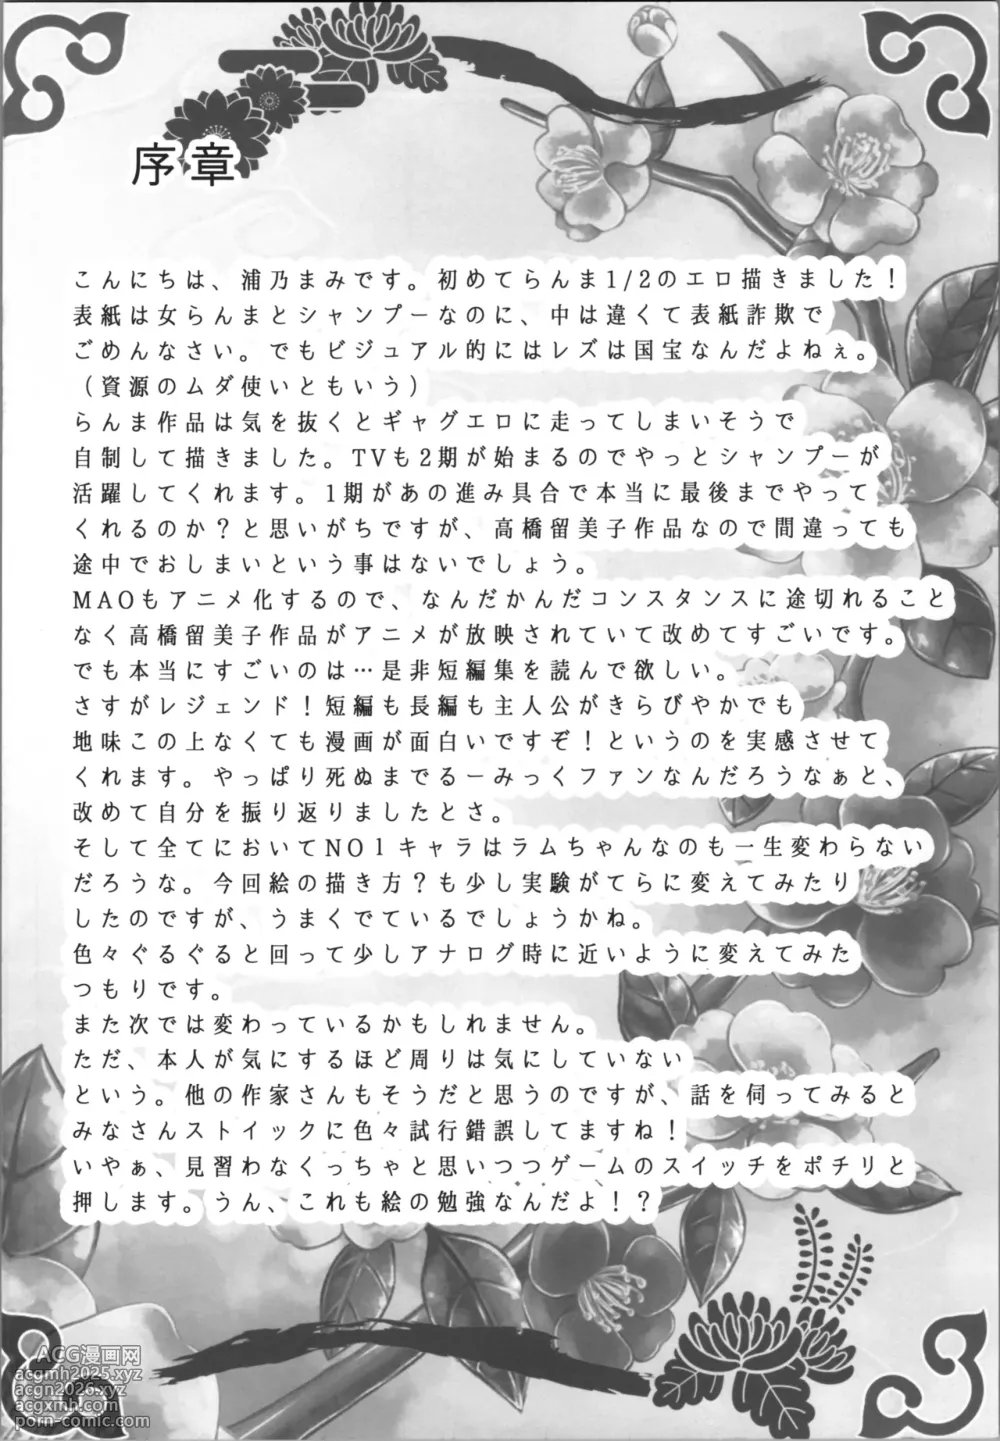 序章
こんにちは、浦乃まみです。初めてらんま1/2のエロ描きました！
表紙は女らんまとシャンプーなのに、中は違くて表紙詐欺で
ごめんなさい。でもビジュアル的にはレズは国宝なんだよねぇ。
（資源のムダ使いともいう）
らんま作品は気を抜くとギャグエロに走ってしまいそうで
自制して描きました。TVも2期が始まるのでやっとシャンプーが
活躍してくれます。1期があの進み具合で本当に最後までやって
くれるのか？と思いがちですが、高橋留美子作品なので間違っても
途中でおしまいという事はないでしょう。
MAOもアニメ化するので、なんだかんだコンスタンスに途切れること
なく高橋留美子作品がアニメが放映されていて改めてすごいです。
でも本当にすごいのは…是非短編集を読んで欲しい。
さすがレジェンド！短編も長編も主人公がきらびやかでも
地味この上なくても漫画が面白いですぞ！というのを実感させて
くれます。やっぱり死ぬまでるーみっくファンなんだろうなぁと、
改めて自分を振り返りましたとさ。
そして全てにおいてNO1キャラはラムちゃんなのも一生変わらない
だろうな。今回絵の描き方？も少し実験がてらに変えてみたり
したのですが、うまくでているでしょうかね。
色々ぐるぐると回って少しアナログ時に近いように変えてみた
つもりです。
また次では変わっているかもしれません。
ただ、本人が気にするほど周りは気にしていない
という。他の作家さんもそうだと思うのですが、話を伺ってみると
みなさんストイックに色々試行錯誤してますね！
いやぁ、見習わなくっちゃと思いつつゲームのスイッチをポチリと
押します。うん、これも絵の勉強なんだよ！？
ACG漫画网
acgmh2025.xyz
acgn2026.xyz
porn-comic.com